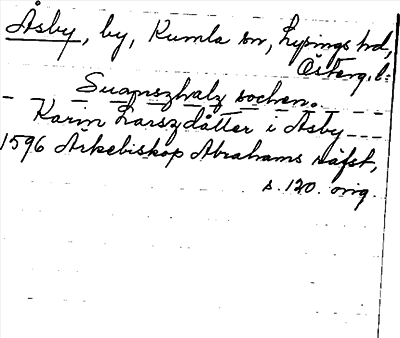 Åsby, by, Kumla sn, Lysings hd,
Österg. l:
Suanszhalz sochen.
Karin Larszdåtter i Åsby
1596 Ärkebiskop Abrahams räfst,
s. 120. orig.